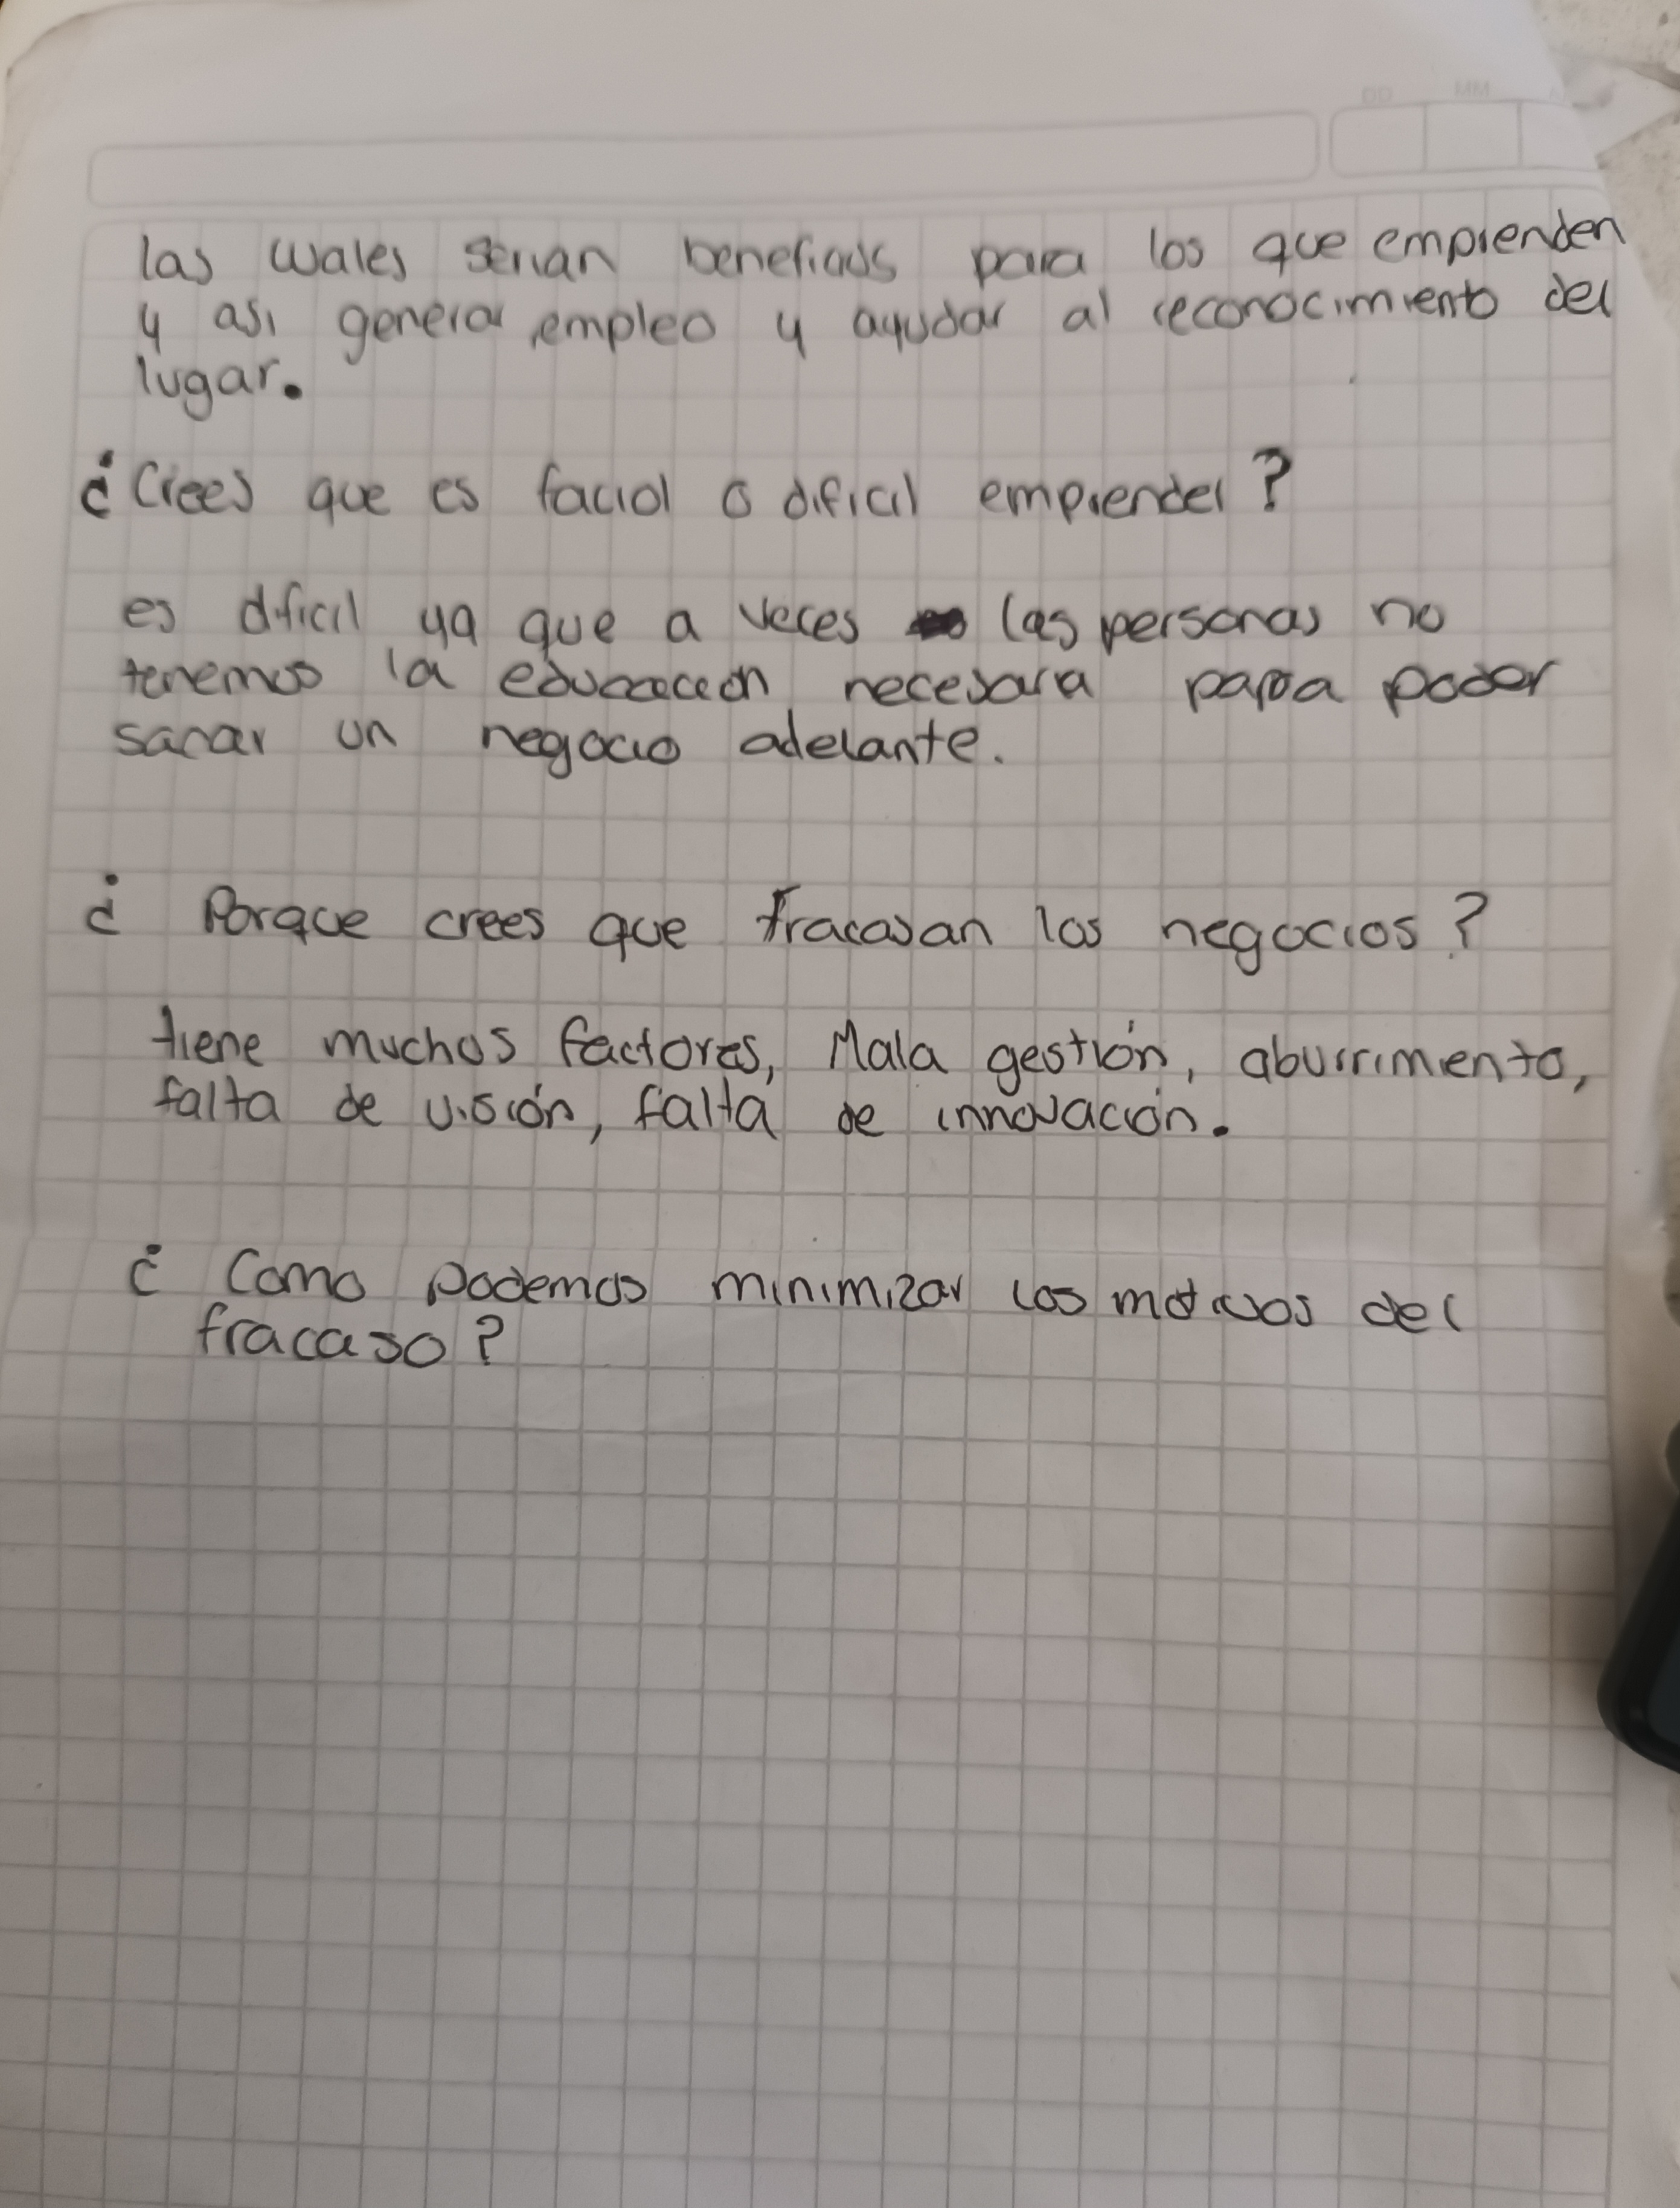 las cuales serian beneficios para los que emprenden
y asi generar empleo y ayudar al reconocimiento del
lugar.
¿Crees que es facil o dificil emprender?
es dificil ya que a veces las personas no
tenemos la educacion necesaria para poder
sacar un negocio adelante.
¿Porque crees que fracasan los negocios?
tiene muchos factores, Mala gestión, aburrimento,
falta de visión, falta de innovación.
¿Como podemos minimizar los motivos del
fracaso?